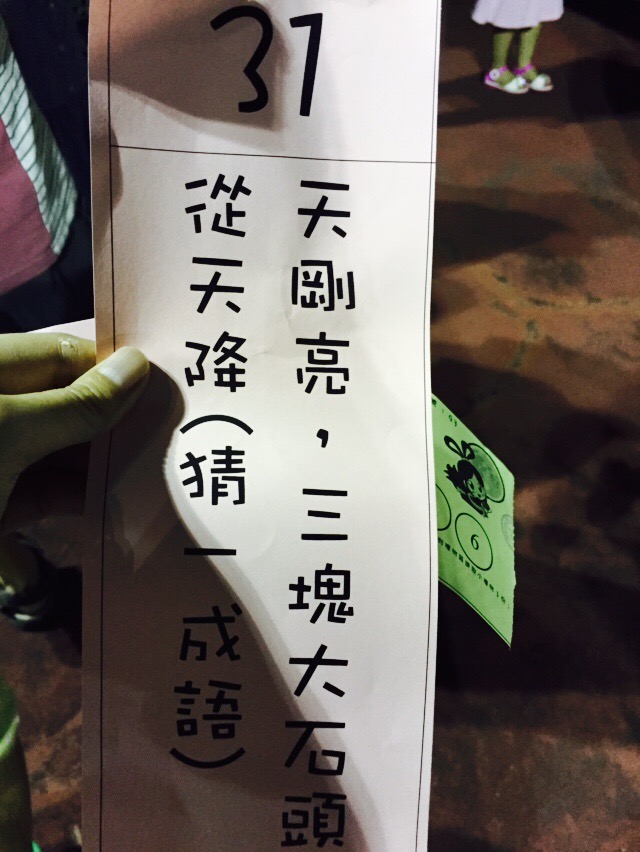 31
天剛亮，三塊大石頭
從天降(猜一成語)
6